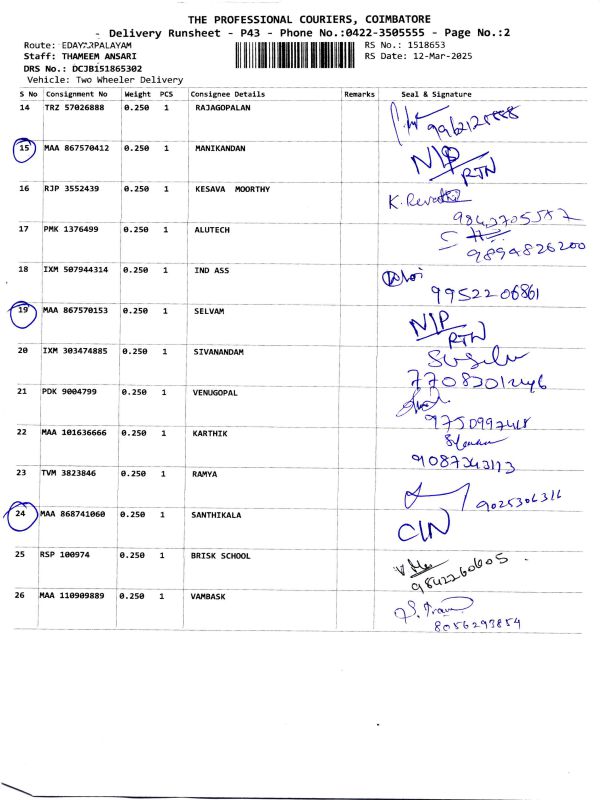 THE PROFESSIONAL COURIERS, COIMBATORE
- Delivery Runsheet - P43 - Phone No.:0422-3505555 - Page No.:2
Route: EDAYARPALAYAM RS No.: 1518653
Staff: THAMEEM ANSARI RS Date: 12-Mar-2025
DRS No.: DCJB151865302
Vehicle: Two Wheeler Delivery
S No Consignment No Weight PCS Consignee Details Remarks Seal & Signature
14 TRZ 57026888 0.250 1 RAJAGOPALAN
15 MAA 867570412 0.250 1 MANIKANDAN N/P RTN
16 RJP 3552439 0.250 1 KESAVA MOORTHY K. Revathi
9842705587
17 PMK 1376499 0.250 1 ALUTECH
9894826200
18 IXM 507944314 0.250 1 IND ASS
9952206861
19 MAA 867570153 0.250 1 SELVAM N/P RTN
20 IXM 303474885 0.250 1 SIVANANDAM
21 PDK 9004799 0.250 1 VENUGOPAL
22 MAA 101636666 0.250 1 KARTHIK
23 TVM 3823846 0.250 1 RAMYA
9025306316
24 MAA 868741060 0.250 1 SANTHIKALA CIN
25 RSP 100974 0.250 1 BRISK SCHOOL
9842260605
26 MAA 110909889 0.250 1 VAMBASK
8056293854